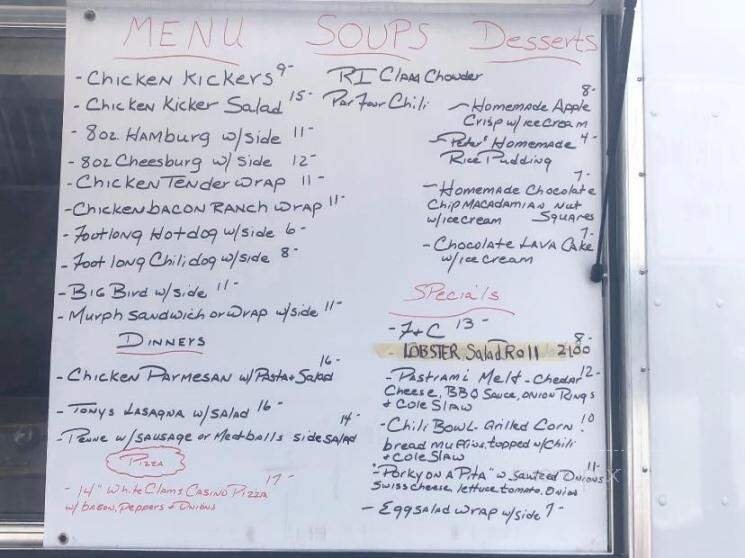 MENU
- Chicken Kickers 9-
- Chicken Kicker Salad 15-
- 8oz. Hamburg w/side 11-
- 8oz Cheesburg w/side 12-
- Chicken Tender wrap 11-
- Chicken bacon Ranch wrap 11-
- Footlong Hotdog w/side 6-
- Foot long Chilidog w/side 8-
- Big Bird w/side 11-
- Murph Sandwich or wrap w/side 11-
Dinners
- Chicken Parmesan w/Pasta + Salad 16-
- Tonys Lasagna w/salad 16-
- Penne w/sausage or Meatballs side salad 14-
Pizza
- 14" White Clams Casino Pizza 17-
w/ bacon, Peppers + Onions
SOUPS
RI Clam Chowder
Par Four Chili
Desserts
- Homemade Apple 8-
Crisp w/ice cream
- "Peter" Homemade 4-
Rice Pudding
- Homemade Chocolate 7-
Chip MACADAMIAN Nut
w/ice cream Squares
- Chocolate Lava Cake 7-
w/ice cream
Specials
- F+C 13-
- LOBSTER Salad Roll 2100
- Pastrami Melt - Chedar 12-
Cheese, BBQ Sauce, onion Rings
+ Cole Slaw
- Chili Bowl - Grilled Corn 10-
bread muffins topped w/Chili
+ Cole Slaw
- "Porky on a Pita" w Sauteed Onions 11-
Swiss cheese, lettuce, tomato, Onion
- Eggsalad wrap w/side 7-